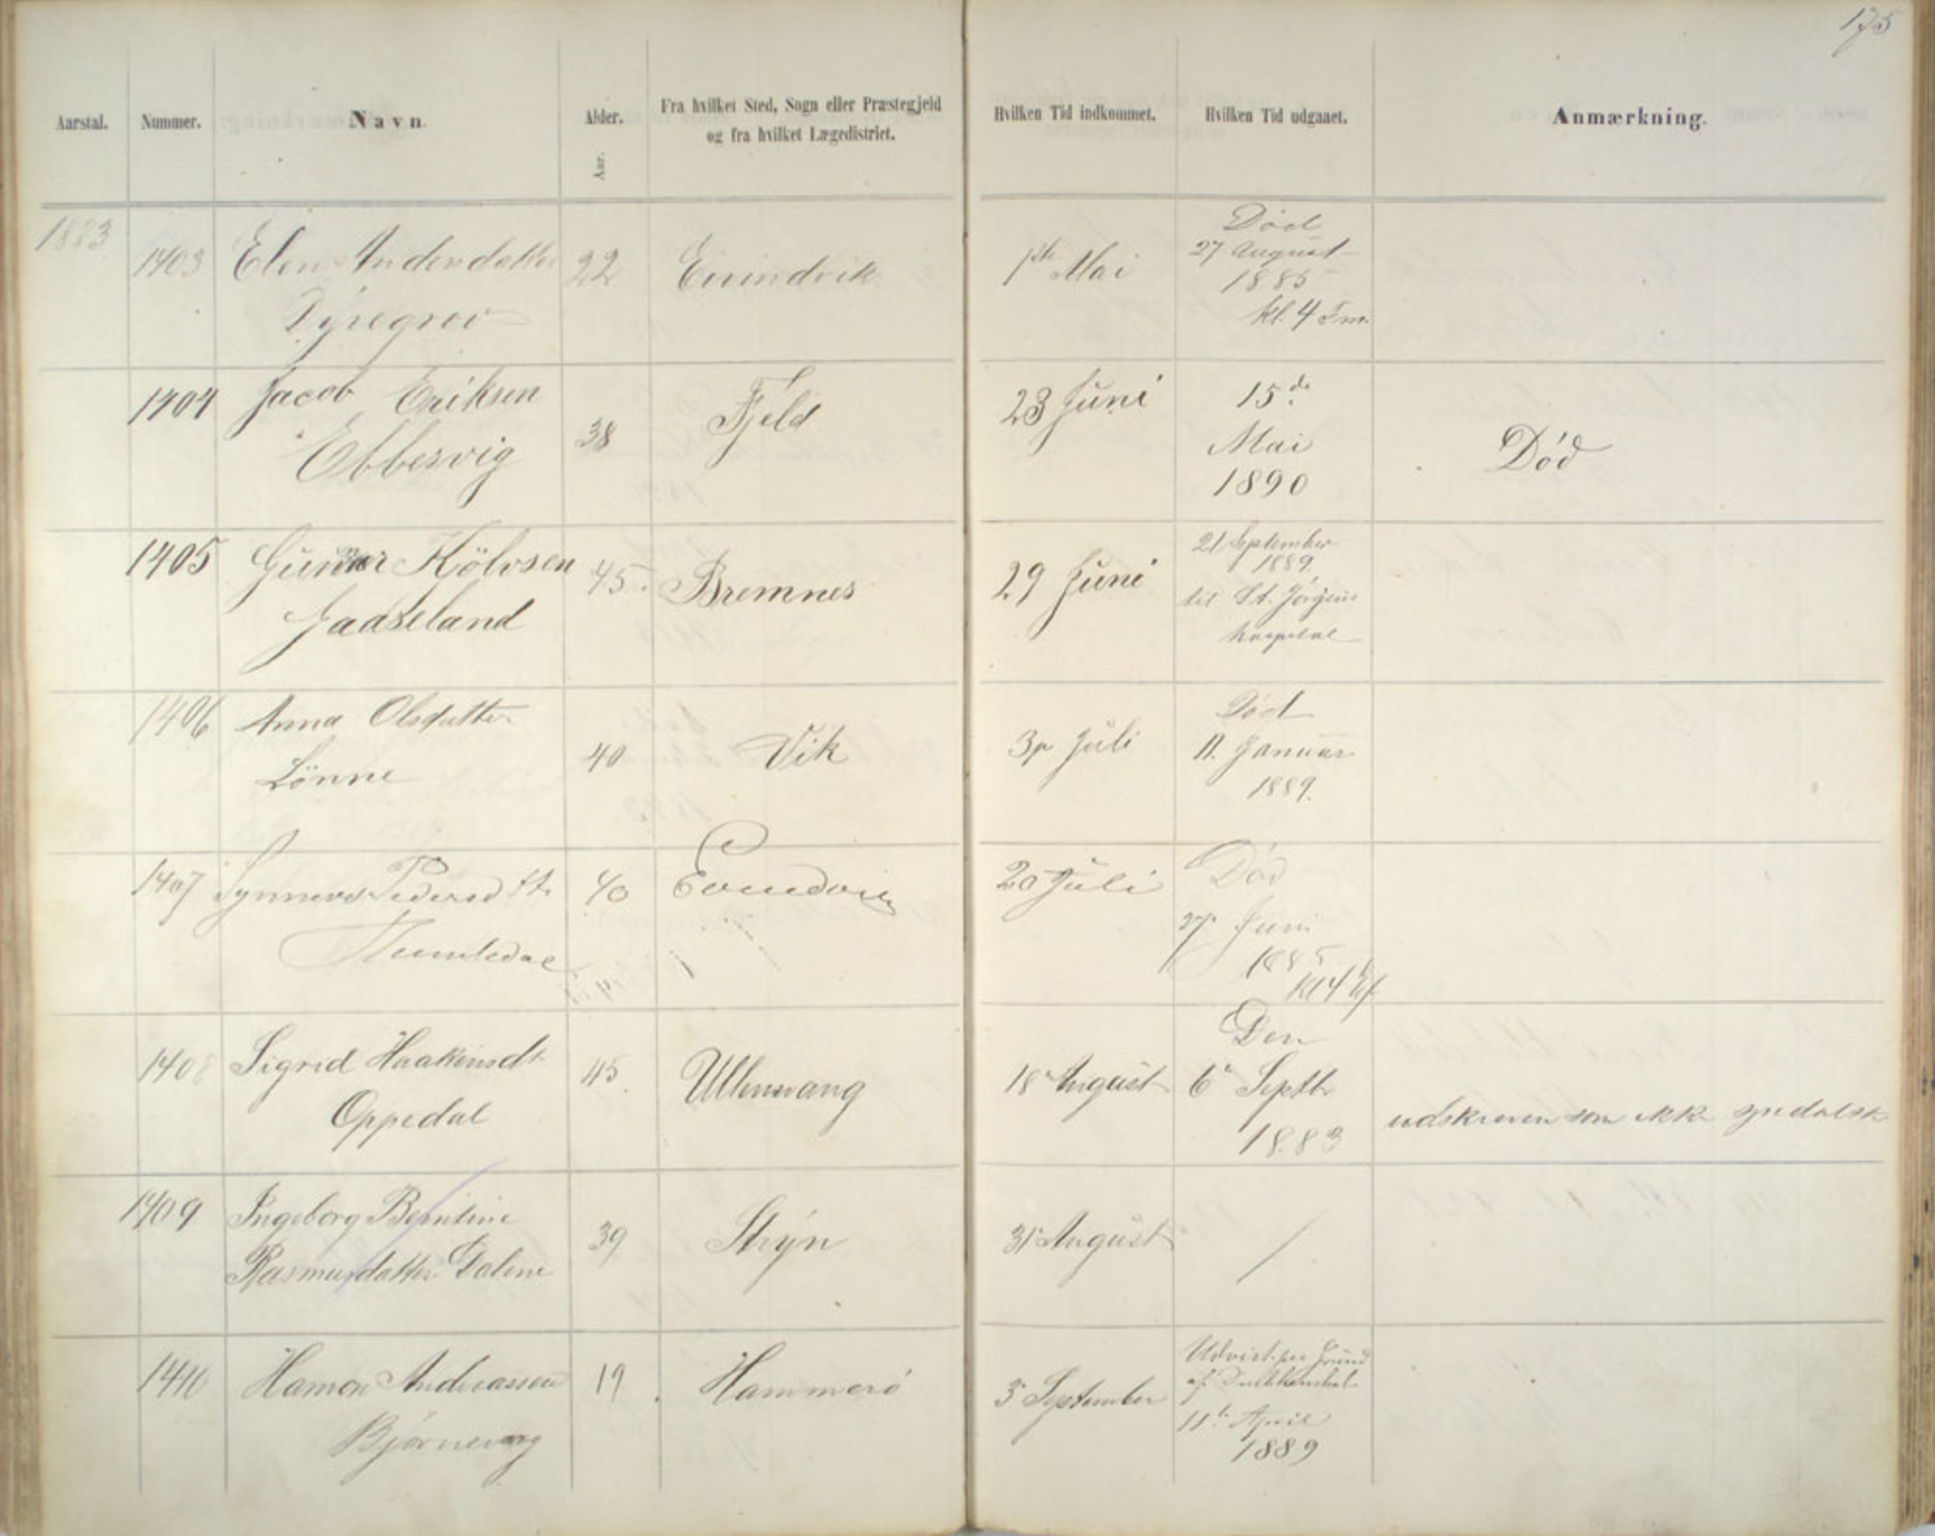 175
Aarstal. Nummer. Navn. Alder. Fra hvilket Sted, Sogn eller Præstegjeld Hvilken Tid indkommet. Hvilken Tid udgaaet. Anmærkning.
Aar. og fra hvilket Lægedistrict.
1883 Død
1403 Elen Andersdatter 22 Evindvik 1ste Mai 27 August
Dyregrov 1885
kl. 4 Fm.
1404 Jacob Eriksen 38 Fjeld 23 Juni 15de
Ebbesvig Mai Død
1890
1405 Gunnar Kölvsen 45 Bremnes 29 Juni 21 September
Jaastland 1889
til St. Jørgens
hospital
1406 Anna Olsdatter 40 Vik 3 Juli Død
Lönne 11. Januar
1889.
1407 Synneve Pedersdtr 40 Evindvig 20 Juli Død
27 Juni
1885
1408 Sigrid Haakensdtr 45 Ullensvang 18 August Den
Oppedal 6 Septbr
1883 udskreven som ikke spedalsk
1409 Ingeborg Berntine 39 Stryn 31 August /
Rasmusdatter Dalene
1410 Hamon Andreassen 19 Hammerö 3 September Udvist paa Grund
Bjørnevaag af Drukkenskab
11te April
1889